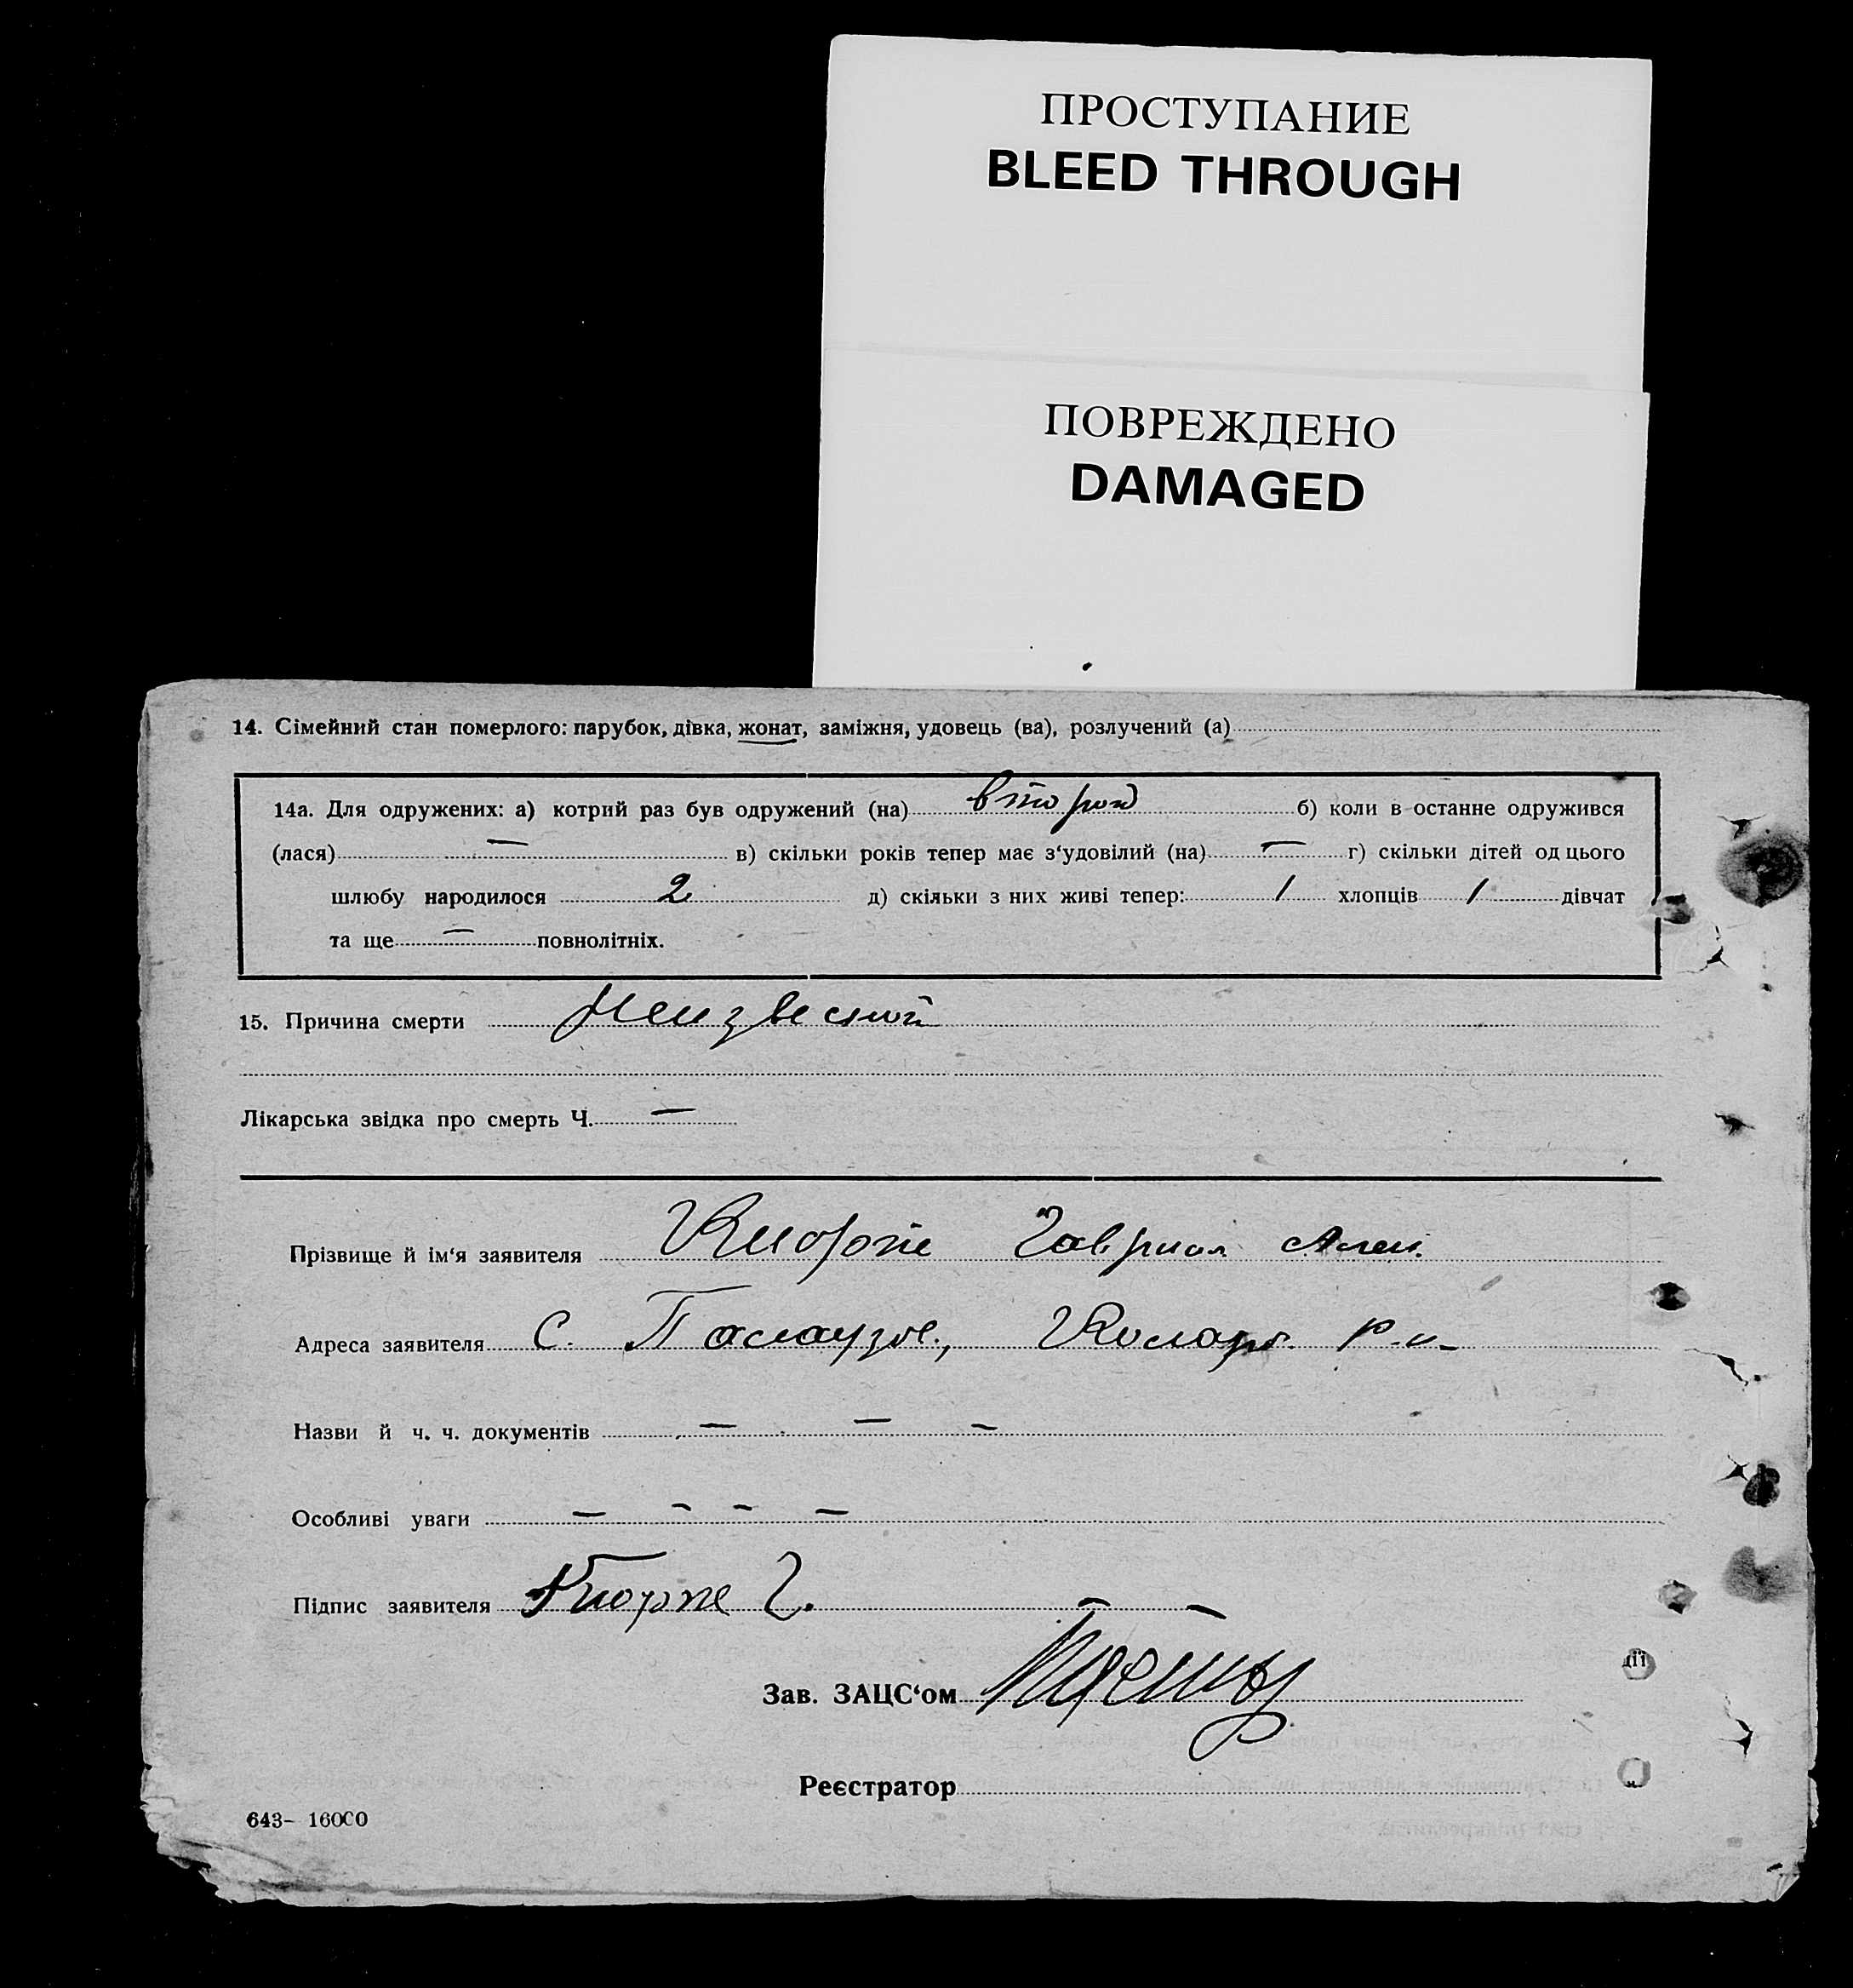 ПРОСТУПАНИЕ
BLEED THROUGH
ПОВРЕЖДЕНО
DAMAGED
14. Сімейний стан померлого: парубок, дівка, жонат, заміжня, удовець (ва), розлучений (а)
14а. Для одружених: а) котрий раз був одружений (на) второй б) коли в останне одружився
(лася) — в) скільки років тепер має з‘удовілий (на) — г) скільки дітей од цього
шлюбу народилося 2 д) скільки з них живі тепер: 1 хлопців 1 дівчат
та ще — повнолітніх.
15. Причина смерти
Лікарська звідка про смерть Ч. —
Прізвище й ім‘я заявителя Киорже Гавриил Алек.
Адреса заявителя с. Палаузов., Коларов. р-н
Назви й ч. ч. документів — — —
Особливі уваги — — — —
Підпис заявителя Киорже Г.
Зав. ЗАЦС‘ом
дії
Реєстратор
643— 16000